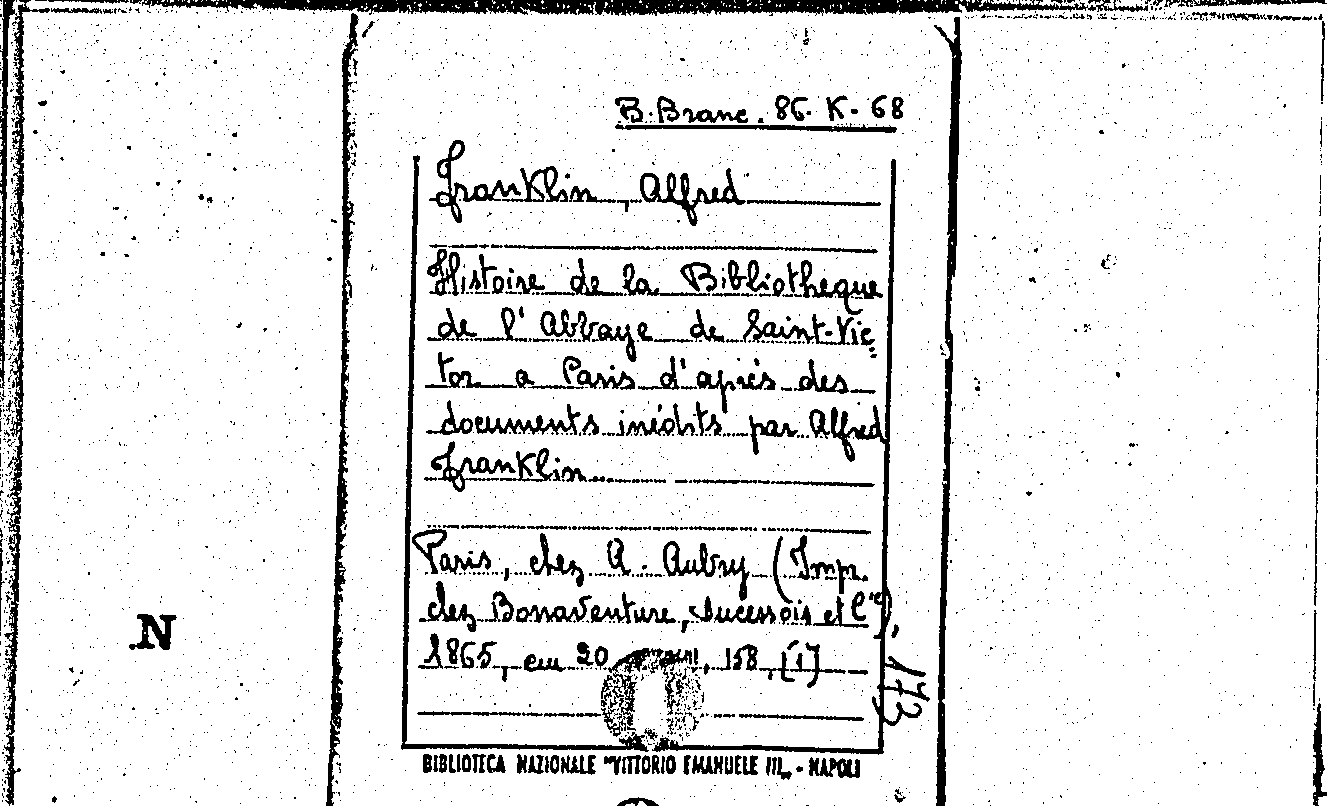 B. Branc. 86. K. 68
Franklin, Alfred
Histoire de la Bibliotheque
de l'Abbaye de Saint-Vic=
tor a Paris d'après des
documents inédits par Alfred
Franklin...
Paris, chez A. Aubry (Impr.
chez Bonaventure, Ducessois et C.ie),
1865, cm 20, 158, [1]
173
N
BIBLIOTECA NAZIONALE "VITTORIO EMANUELE III„ - NAPOLI